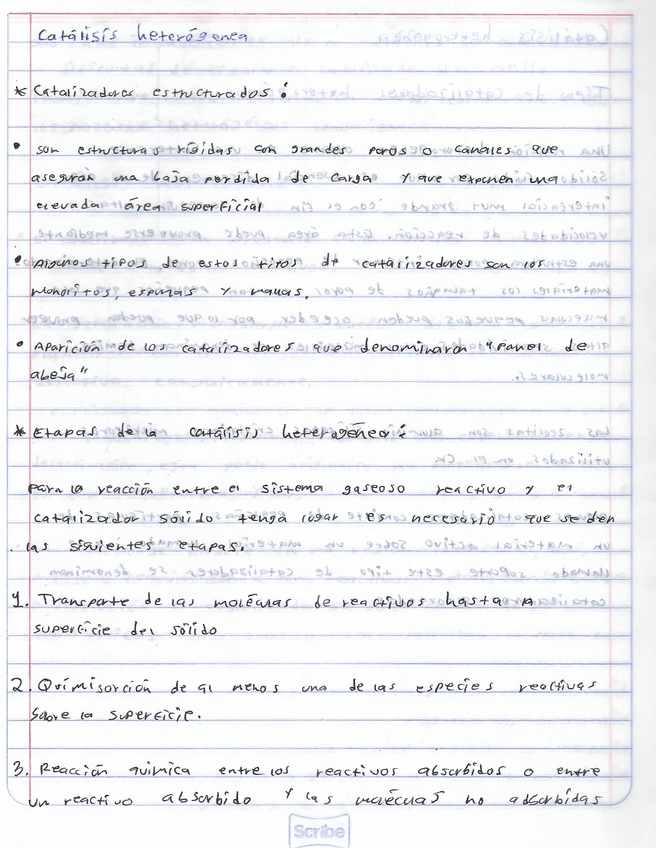 Catálisis heterógenea
* Catalizadores estructurados:
• son estructuras rígidas con grandes poros o canales que
aseguran una baja perdida de carga y que exponen una
elevada área superficial
• Algunos tipos de estos tipos de catalizadores son los
monolitos, espumas y mallas.
• Aparición de los catalizadores que denominaron "panel de
abeja"
* Etapas de la catálisis heterogénea:
Para la reacción entre el sistema gaseoso reactivo y el
catalizador sólido tenga lugar es necesario que se den
las siguientes etapas.
1. Transporte de las moléculas de reactivos hasta la
superficie del sólido
2. Quimisorción de al menos una de las especies reactivas
sobre la superficie.
3. Reacción química entre los reactivos absorbidos o entre
un reactivo absorbido y las moléculas no adsorbidas
Scribe